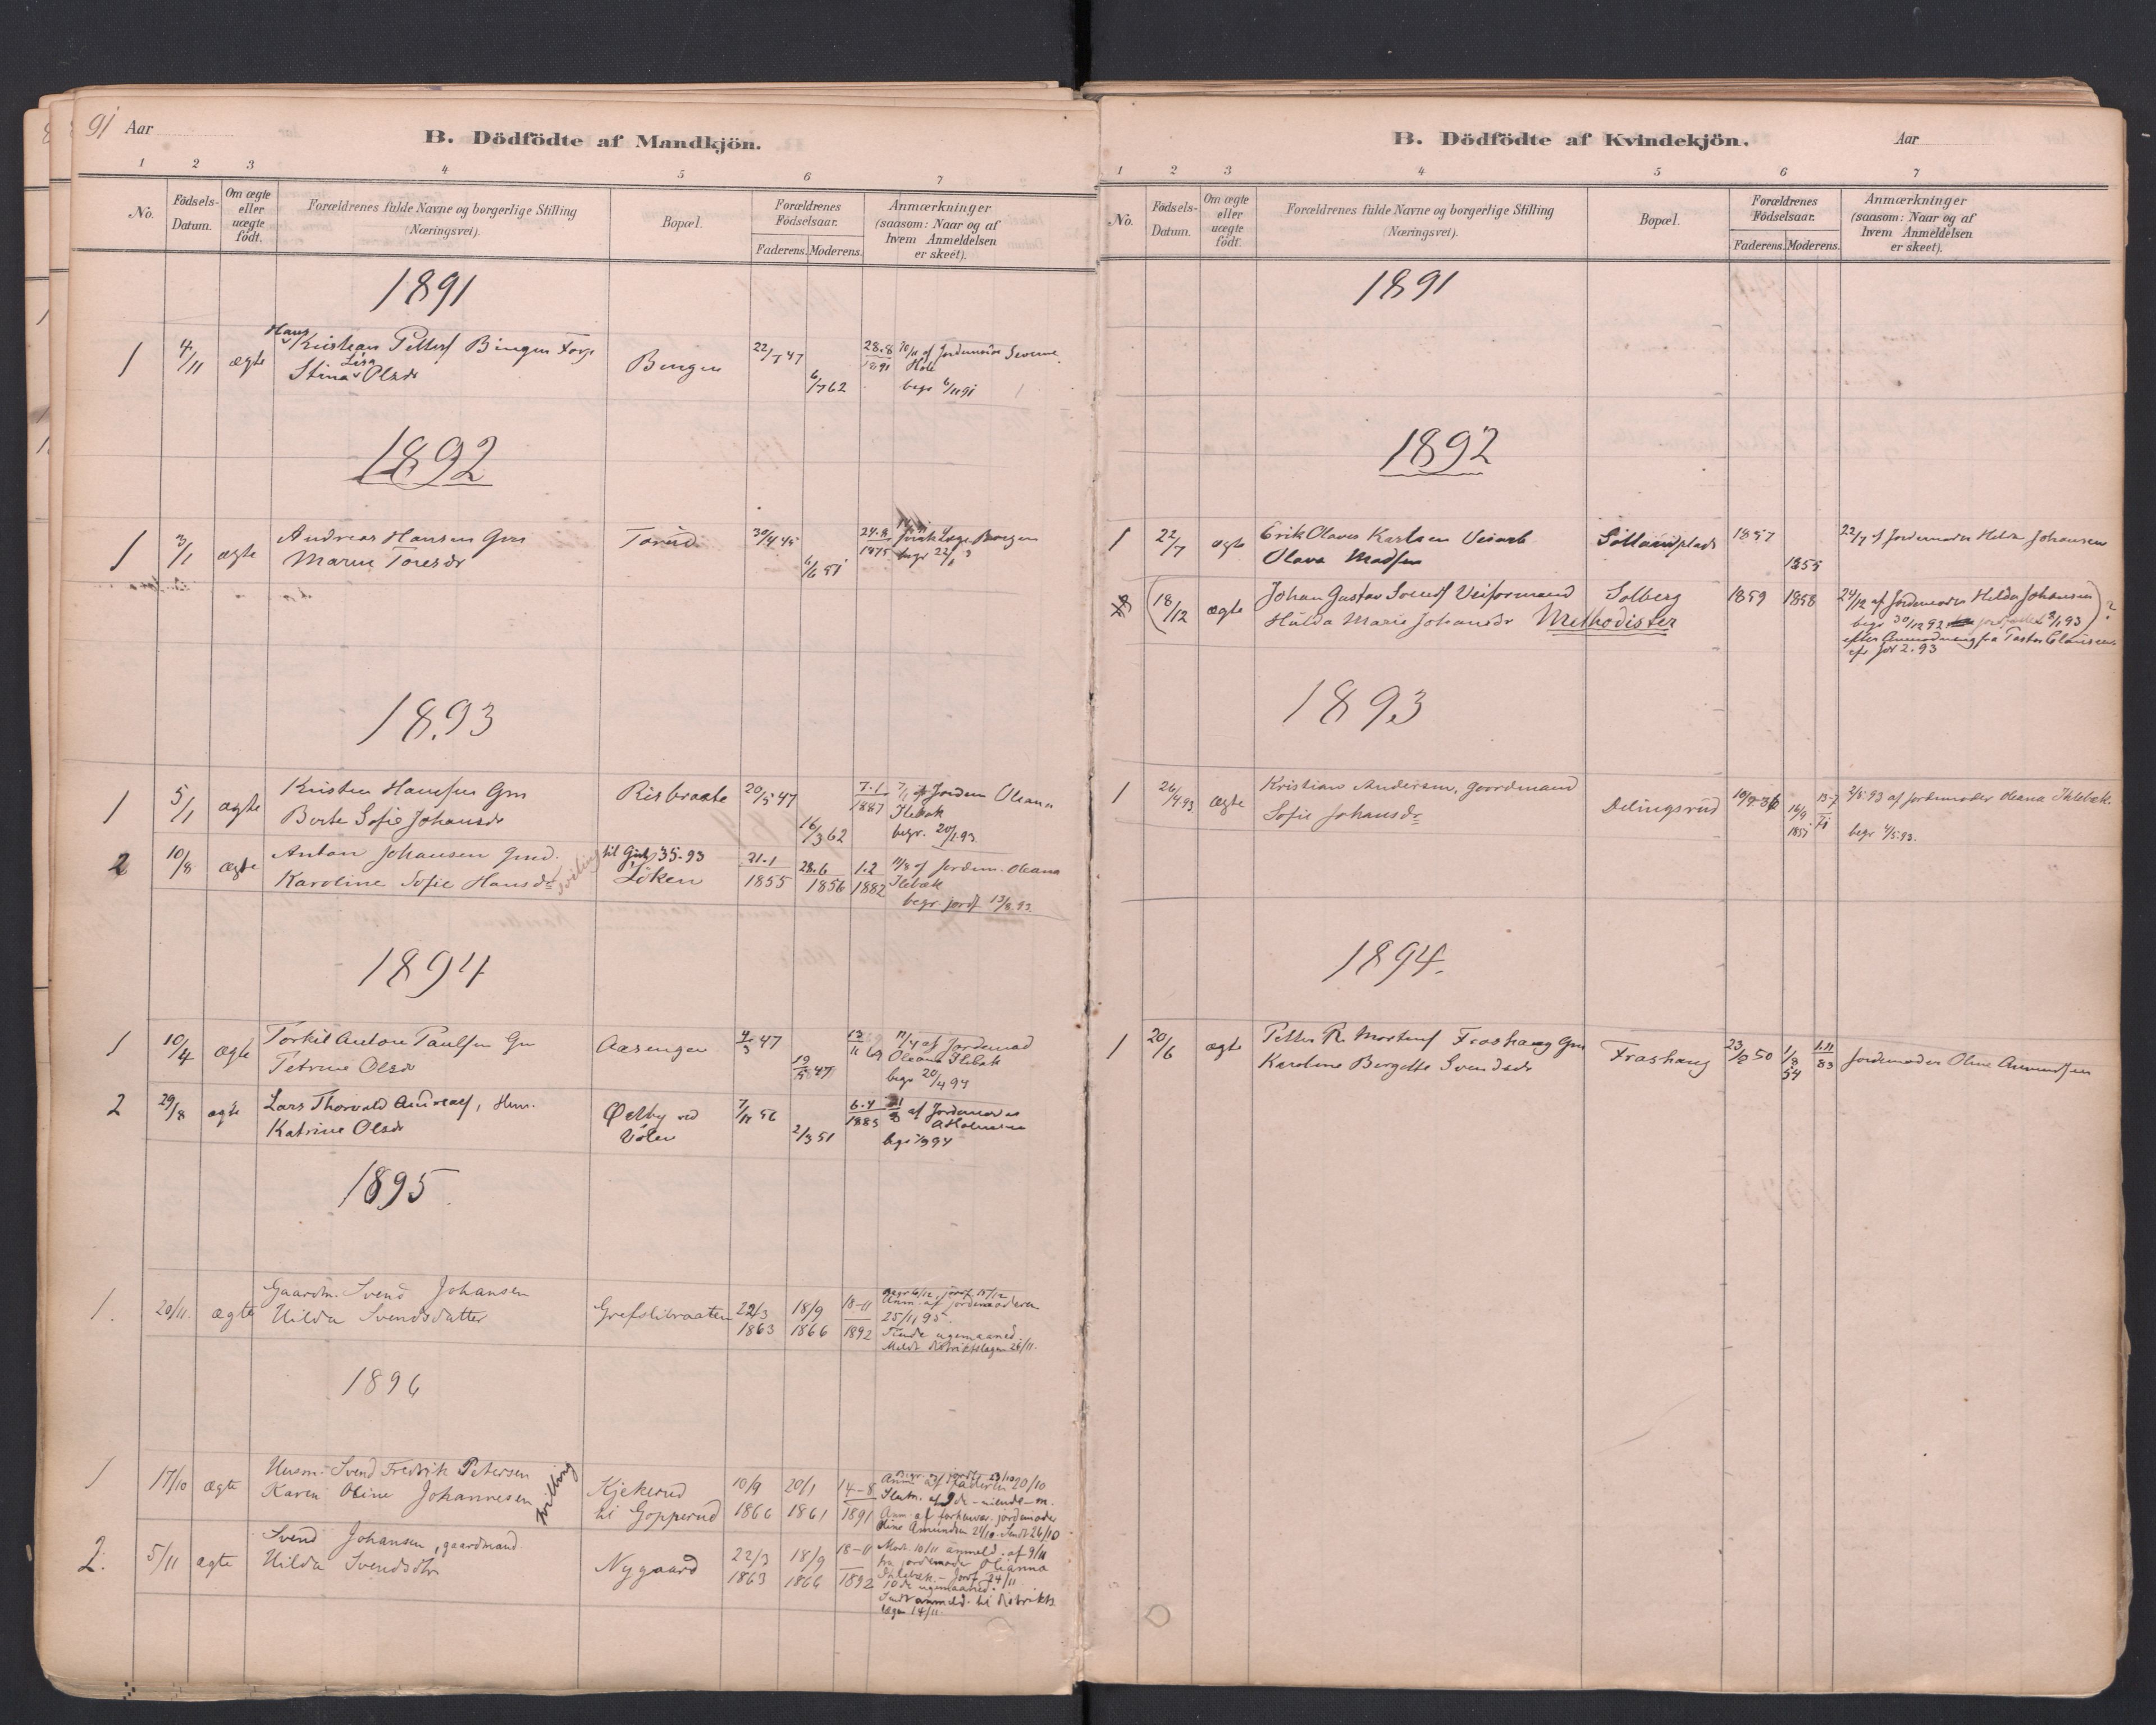 91 Aar
B. Dödfödte af Mandkjön.
1 2 3 4 5 6 7
No. Födsels-Datum. Om ægte eller uægte födt. Forældrenes fulde Navne og borgerlige Stilling (Næringsvei). Bopæl. Forældrenes Födselsaar. Faderens. Moderens. Anmærkninger (saasom: Naar og af hvem Anmeldelsen er skeet).
1891
1 4/11 ægte Hans Kristian Petters Bingen
Stina Lisa Olsdr Bingen 6/7 62 28.8 1891
begr 6/11 91
1892
1 3/1 ægte Andreas Hansen Gm Torud 30/4 45
Maren Toresdr 6/6 51 24.8 1875
begr 22/1
1893
1 5/1 ægte Kristen Hansen Gm Risbraate 20/5 47 7.1 1887 af Jordem Oleana
Berte Sofie Johansdr 16/3 62 Ilebæk
begr. 20/1 93
2 10/8 ægte Anton Johansen Gmd. tvilling til 35-93
Karoline Sofie Hansdr Löken 21.1 1855 28.6 1856 1.2 1882 11/8 af Jordem. Oleana
Ilebæk
begr. jordf 13/8 93.
1894
1 10/4 ægte Torkil Anton Paulsen Gm Aasengen 4/3 47 11/4 af Jordemod
Petrine Olsdr 19/5 47 Oleana Ilebæk
begr 20/4 94
2 29/8 ægte Lars Thorvald Andreas, Husm. Østby ved 7/11 56 6.4 1883 af Jordemoder
Katrine Olsdr Volen 2/3 51
1895
1. 20/11. ægte Gaardm. Svend Johansen
Hilda Svendsdatter Grefslibraaten 22/3 1863 18/9 1866 18-11 1892
begr 6/12, jordf. 15/12
Anm. af jordemoderen
25/11 95.
Meldt distriktslægen 26/11.
1896
1 17/10 ægte Husm. Svend Fredrik Petersen
Karen Oline Johannesen tvilling Kjekerud
til Gopperud 10/9 1866 20/1 1861 14-8 1891
Anm. af faderen 20/10
Anm. af jordemoder
Oline Amundsen 21/10. Sendt 26/10
2. 5/11 ægte Svend Johansen, gaardmand
Hilda Svendsdtr Nygaard 22/3 1863 18/9 1866 18-11 1892
Modt. 10/11 anmeld. af 9/11
fra jordemoder Olianna
Ihlebæk. - Jordf 24/11
Sendt anmeld. til distrikts
lægen 14/11.
B. Dödfödte af Kvindekjön.
Aar
1 2 3 4 5 6 7
No. Födsels-Datum. Om ægte eller uægte födt. Forældrenes fulde Navne og borgerlige Stilling (Næringsvei). Bopæl. Forældrenes Födselsaar. Faderens. Moderens. Anmærkninger (saasom: Naar og af hvem Anmeldelsen er skeet).
1891
1892
1 22/7 ægte Erik Olaves Karlsen Veiarb 1857 22/7 af Jordemoder Helda Johansen
Olava Madsen 1855
(18/12 ægte Johan Gustav Svends Veiformand Solberg 1859 1858 24/12 af Jordemoder Helda Johansen)?
Hulda Marie Johansdr Methodister begr 30/12 92 jordfæstet 8/1 93
efter Anmodning fra Pastor Clausen
1893
1 26/4.93 ægte Kristian Andersen, gaardmand Delingsrud 10/9-36 2/5.93 af jordemoder Oleana Ihlebæk.
Sofie Johansdr 16/9 1851 begr 4/5.93.
1894.
1 20/6 ægte Petter R. Mortens Froshaug Gm Froshaug 23/2 50 1/8 54 1.11 83 Jordemoder Oline Amundsen
Karoline Bergette Svendsdr